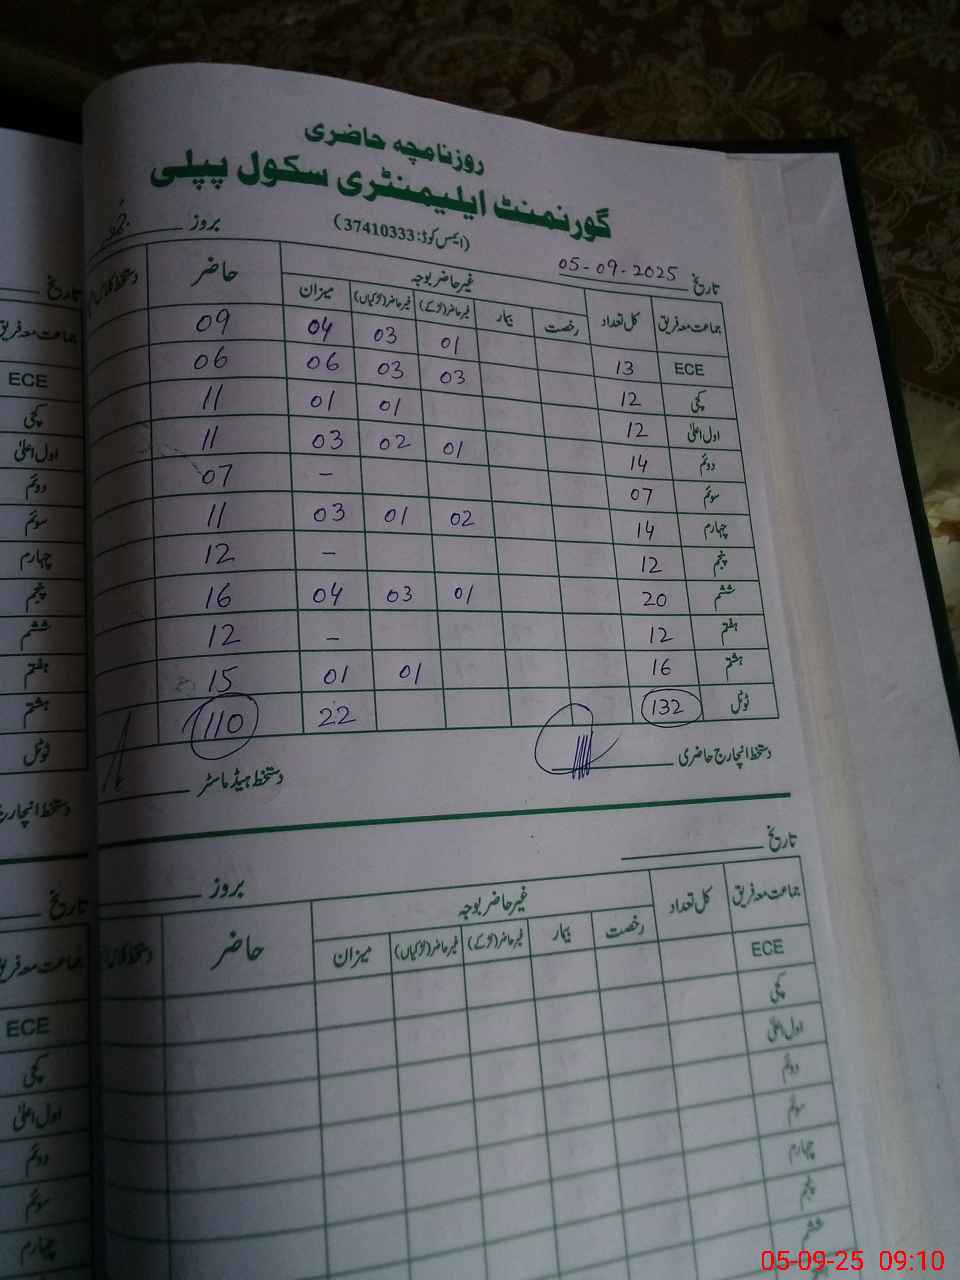 روزنامچہ حاضری
گورنمنٹ ایلیمنٹری سکول پپلی
(ایمس کوڈ: 37410333)
تاریخ 05-09-2025 بروز جمعہ
جماعت معہ فریق کل تعداد غیر حاضر بوجہ حاضر
رخصت بیمار غیر حاضر (لڑکے) غیر حاضر (لڑکیاں) میزان
ECE 13 01 03 04 09
کچی 12 03 03 06 06
اول اعلیٰ 12 01 01 11
دوئم 14 01 02 03 11
سوئم 07 - 07
چہارم 14 02 01 03 11
پنجم 12 - 12
ششم 20 01 03 04 16
ہفتم 12 - 12
ہشتم 16 01 01 15
ٹوٹل 132 22 110
دستخط انچارج حاضری دستخط ہیڈ ماسٹر
تاریخ بروز
جماعت معہ فریق کل تعداد غیر حاضر بوجہ حاضر
رخصت بیمار غیر حاضر (لڑکے) غیر حاضر (لڑکیاں) میزان
ECE
کچی
اول اعلیٰ
دوئم
سوئم
چہارم
پنجم
ششم
تاریخ
جماعت معہ فریق
ECE
کچی
اول اعلیٰ
دوئم
سوئم
چہارم
پنجم
ششم
ہفتم
ہشتم
ٹوٹل
دستخط انچارج
تاریخ
جماعت معہ فریق
ECE
کچی
اول اعلیٰ
دوئم
سوئم
چہارم
05-09-25 09:10